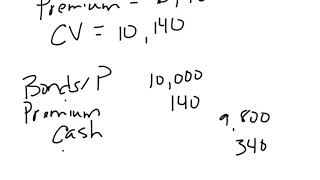 Premium =
CV = 10,140
Bonds/P 10,000
Premium 140
Cash 9,800
340